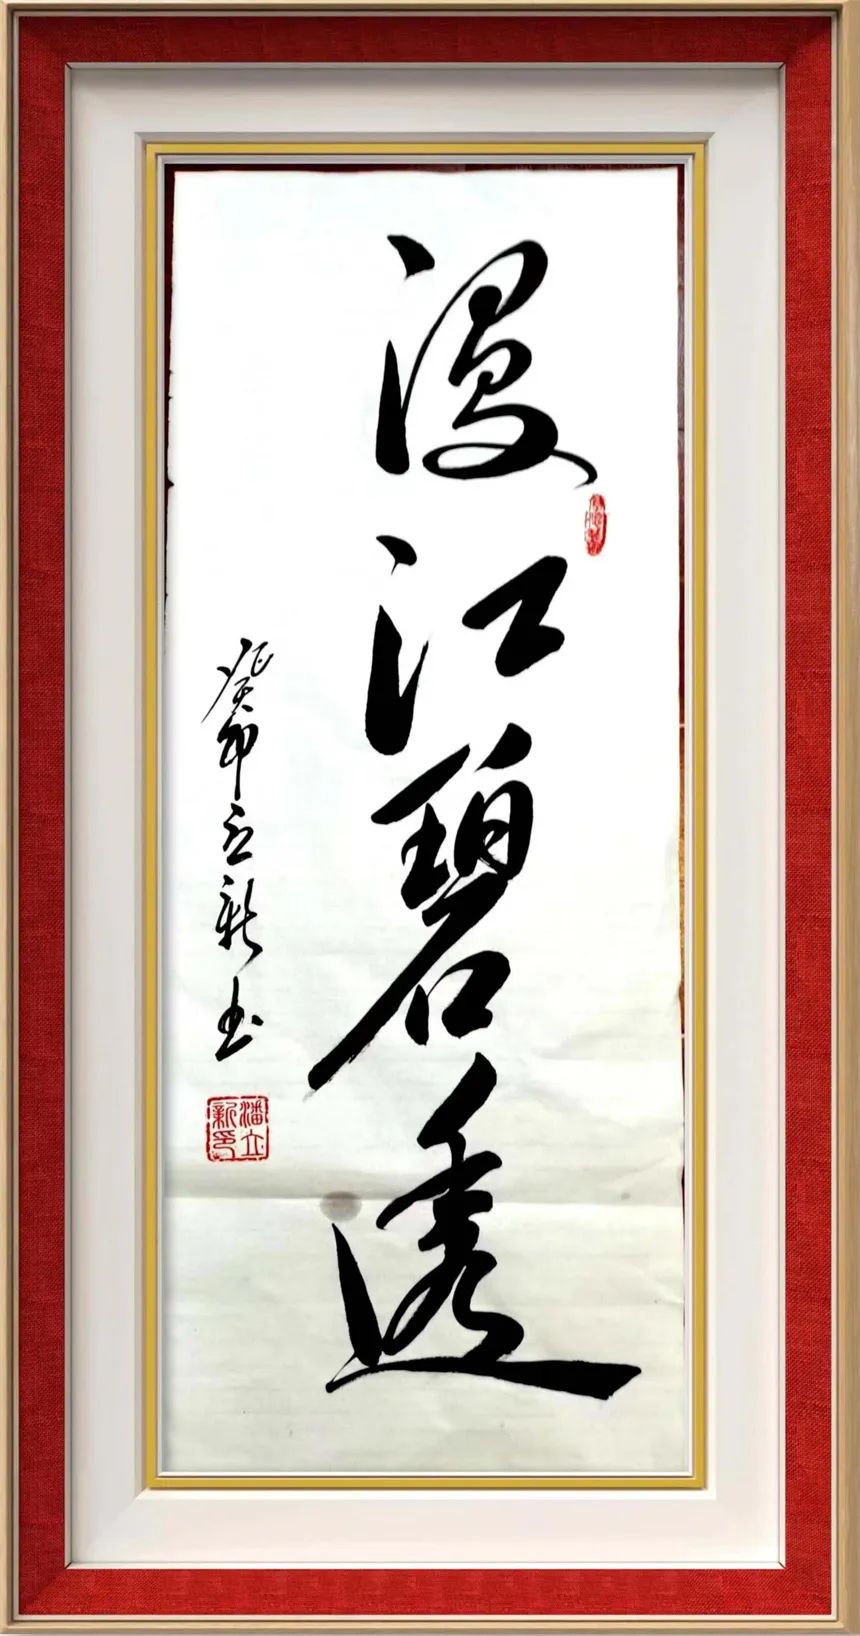 漫江碧透
癸卯立新书
潘立新印